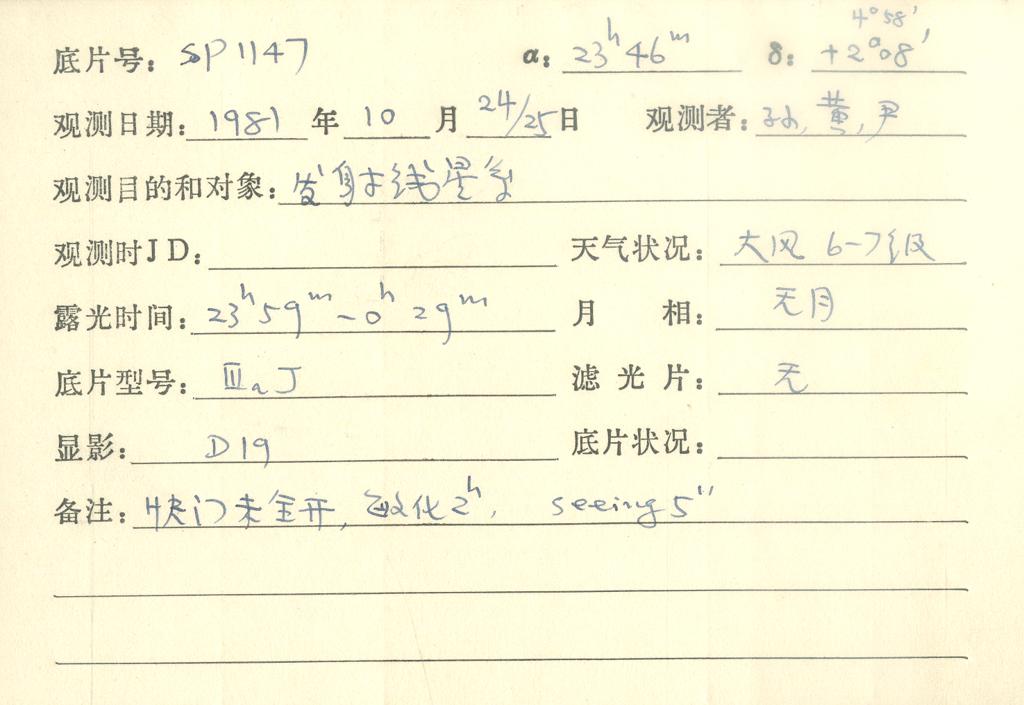 4°58'
底片号: SP1147 α: 23h46m δ: +2°08'
观测日期: 1981 年 10 月 24/25 日 观测者: 孙, 黄, 尹
观测目的和对象: 发射线星系
观测时JD: 天气状况: 大风 6-7级
露光时间: 23h59m~0h29m 月 相: 无月
底片型号: ⅢaJ 滤 光 片: 无
显影: D19 底片状况:
备注: 快门未全开, 敏化2h, seeing 5"